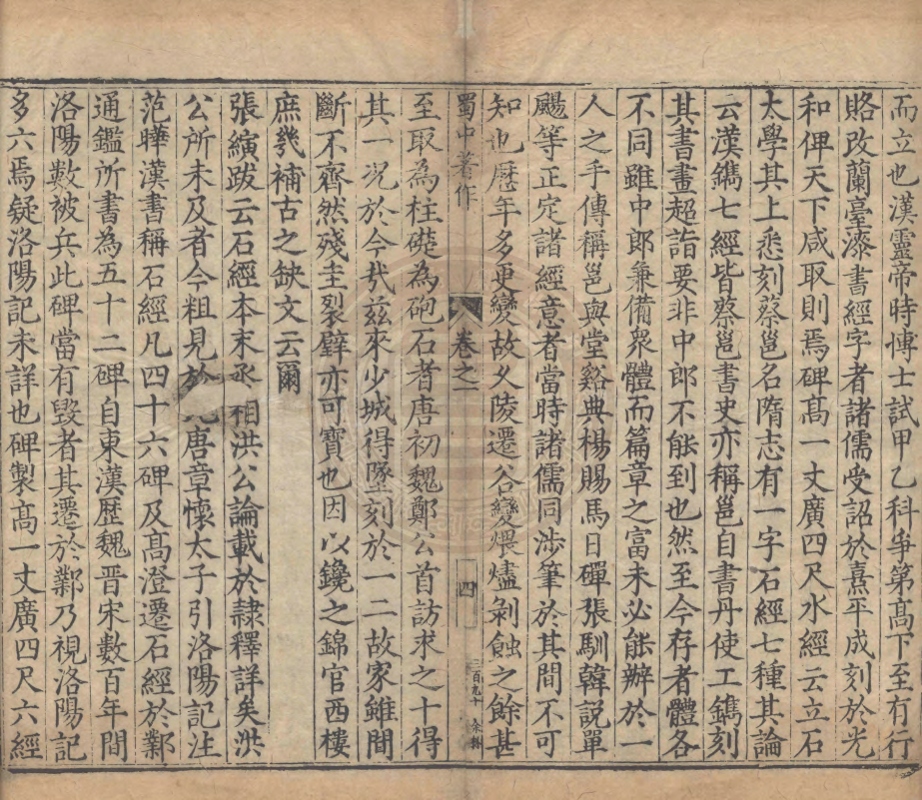 而立也漢靈帝時博士試甲乙科爭第高下至有行
賂改蘭臺漆書經字者諸儒受詔於熹平成刻於光
和俾天下咸取則焉碑高一丈廣四尺水經云立石
太學其上悉刻蔡邕名隋志有一字石經七種其論
云漢鐫七經皆蔡邕書史亦稱邕自書丹使工鐫刻
其書畫超詣要非中郎不能到也然至今存者體各
不同雖中郎兼備眾體而篇章之富未必能辦於一
人之手傳稱邕與堂谿典楊賜馬日磾張馴韓說單
颺等正定諸經意者當時諸儒同涉筆於其間不可
知也歷年多更變故又陵遷谷變煨燼剝蝕之餘甚
蜀中著作
卷之一
四
三百九十
至取為柱礎為砲石者唐初魏鄭公首訪求之十得
其一況於今哉茲來少城得墜刻於一二故家雖間
斷不齊然殘圭裂璧亦可寶也因以鑱之錦官西樓
庶幾補古之缺文云爾
張縯跋云石經本末丞相洪公論載於隷釋詳矣洪
公所未及者今粗見於此唐章懷太子引洛陽記注
范曄漢書稱石經凡四十六碑及高澄遷石經於鄴
通鑑所書為五十二碑自東漢歷魏晉宋數百年間
洛陽數被兵此碑當有毀者其遷於鄴乃視洛陽記
多六焉疑洛陽記未詳也碑製高一丈廣四尺六經